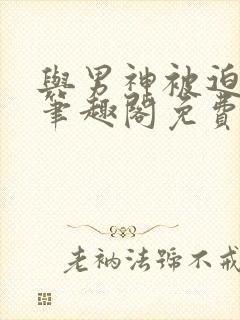 與男神被迫
筆趣閣免費
老衲法號不戒